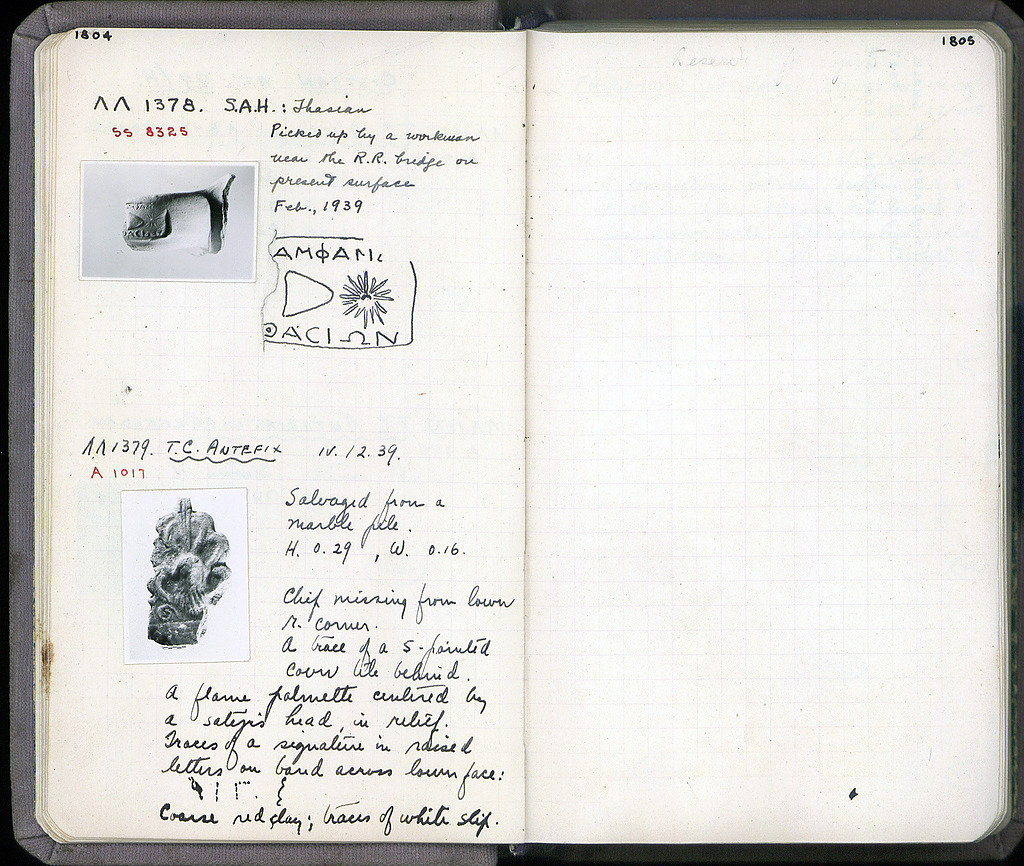 1804
1805
ΛΛ 1378. S.A.H.: Thasian
SS 8325
Picked up by a workman
near the R.R. bridge on
present surface
Feb., 1939
ΑΜΦΑΝ
ΘΑCΙΩΝ
ΛΛ 1379. T.C. ANTEFIX IV.12.39.
A 1017
Salvaged from a
marble pile.
H. 0.29, W. 0.16.
Chip missing from lower
r. corner.
A trace of a 5-pointed
cover tile behind.
A flame palmette centered by
a satyr's head, in relief.
Traces of a signature in raised
letters on band across lower face:
Coarse red clay; traces of white slip.